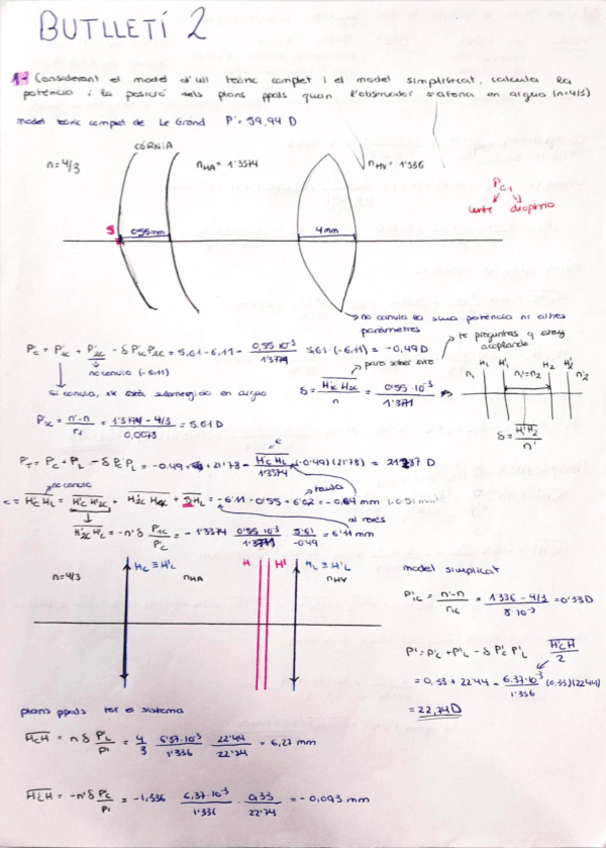 BUTLLETÍ 2
1- Considerant el model d'ull teòric complet i el model simplificat, calcula la
potència i la posició dels plans ppals quan l'observador s'atena en aigua (n=4/3)
model teòric complet de Le Grand P'= 59,94 D
CÓRNIA
n=4/3
n_HA= 1'3374
n_HV= 1'336
P_C1
lente dioptrio
S
0'55mm
4mm
no canvia la seua potència ni altres
paràmetres
te preguntas q estoy
acoplando
P'c = P'1c + P'2c - δ P'1c P'2c = 5,61 - 6,11 - 0,55·10⁻³/1'3771 5,61·(-6,11) = -0,49 D
no canvia (-6,11)
para saber esto
si canvia, està submergida en aigua
δ = H'1c H2c / n = 0'55·10⁻³ / 1'3771
H1 H'1 H2 H'2
n1 n'1=n2 n'2
δ = H'1H2 / n'
P'1c = n'-n / r1 = 1'3771 - 4/3 / 0,0078 = 5,61 D
PT = P'c + P'L - δ P'c P'L = -0.49 + 21'78 - H'c HL / 1'3374 (-0'49)(21'78) = 21'37 D
e
no canvia
tabla
e = H'c HL = H'c H'2c + H'2c + SHL = -6'11 - 0'55 + 6'02 = -0,64 mm
al revés
H'2c H'c = -n' δ P'1c / P'c = - 1'3374 0'55·10⁻³ / 1'3771 5'61 / -0'49 = 6'11 mm
n=4/3
Hc ≡ H'c
n_HA
H H'
HL ≡ H'L
n_HV
model simplificat
P'1c = n'-n / r1c = 1'336 - 4/3 / 8·10⁻³ = 0'33D
P' = P'c + P'L - δ P'c P'L
H'cH / 2
= 0,33 + 22'44 - 6,37·10⁻³ / 1'336 (0,33)(22'44)
= 22,74 D
plans ppals tot el sistema
HcH = n δ P'L / P' = 4/3 6'37·10⁻³ / 1'336 22'44 / 22'74 = 6,27 mm
H'LH' = -n' δ P'c / P' = -1,336 6,37·10⁻³ / 1'336 · 0,33 / 22'74 = -0,093 mm